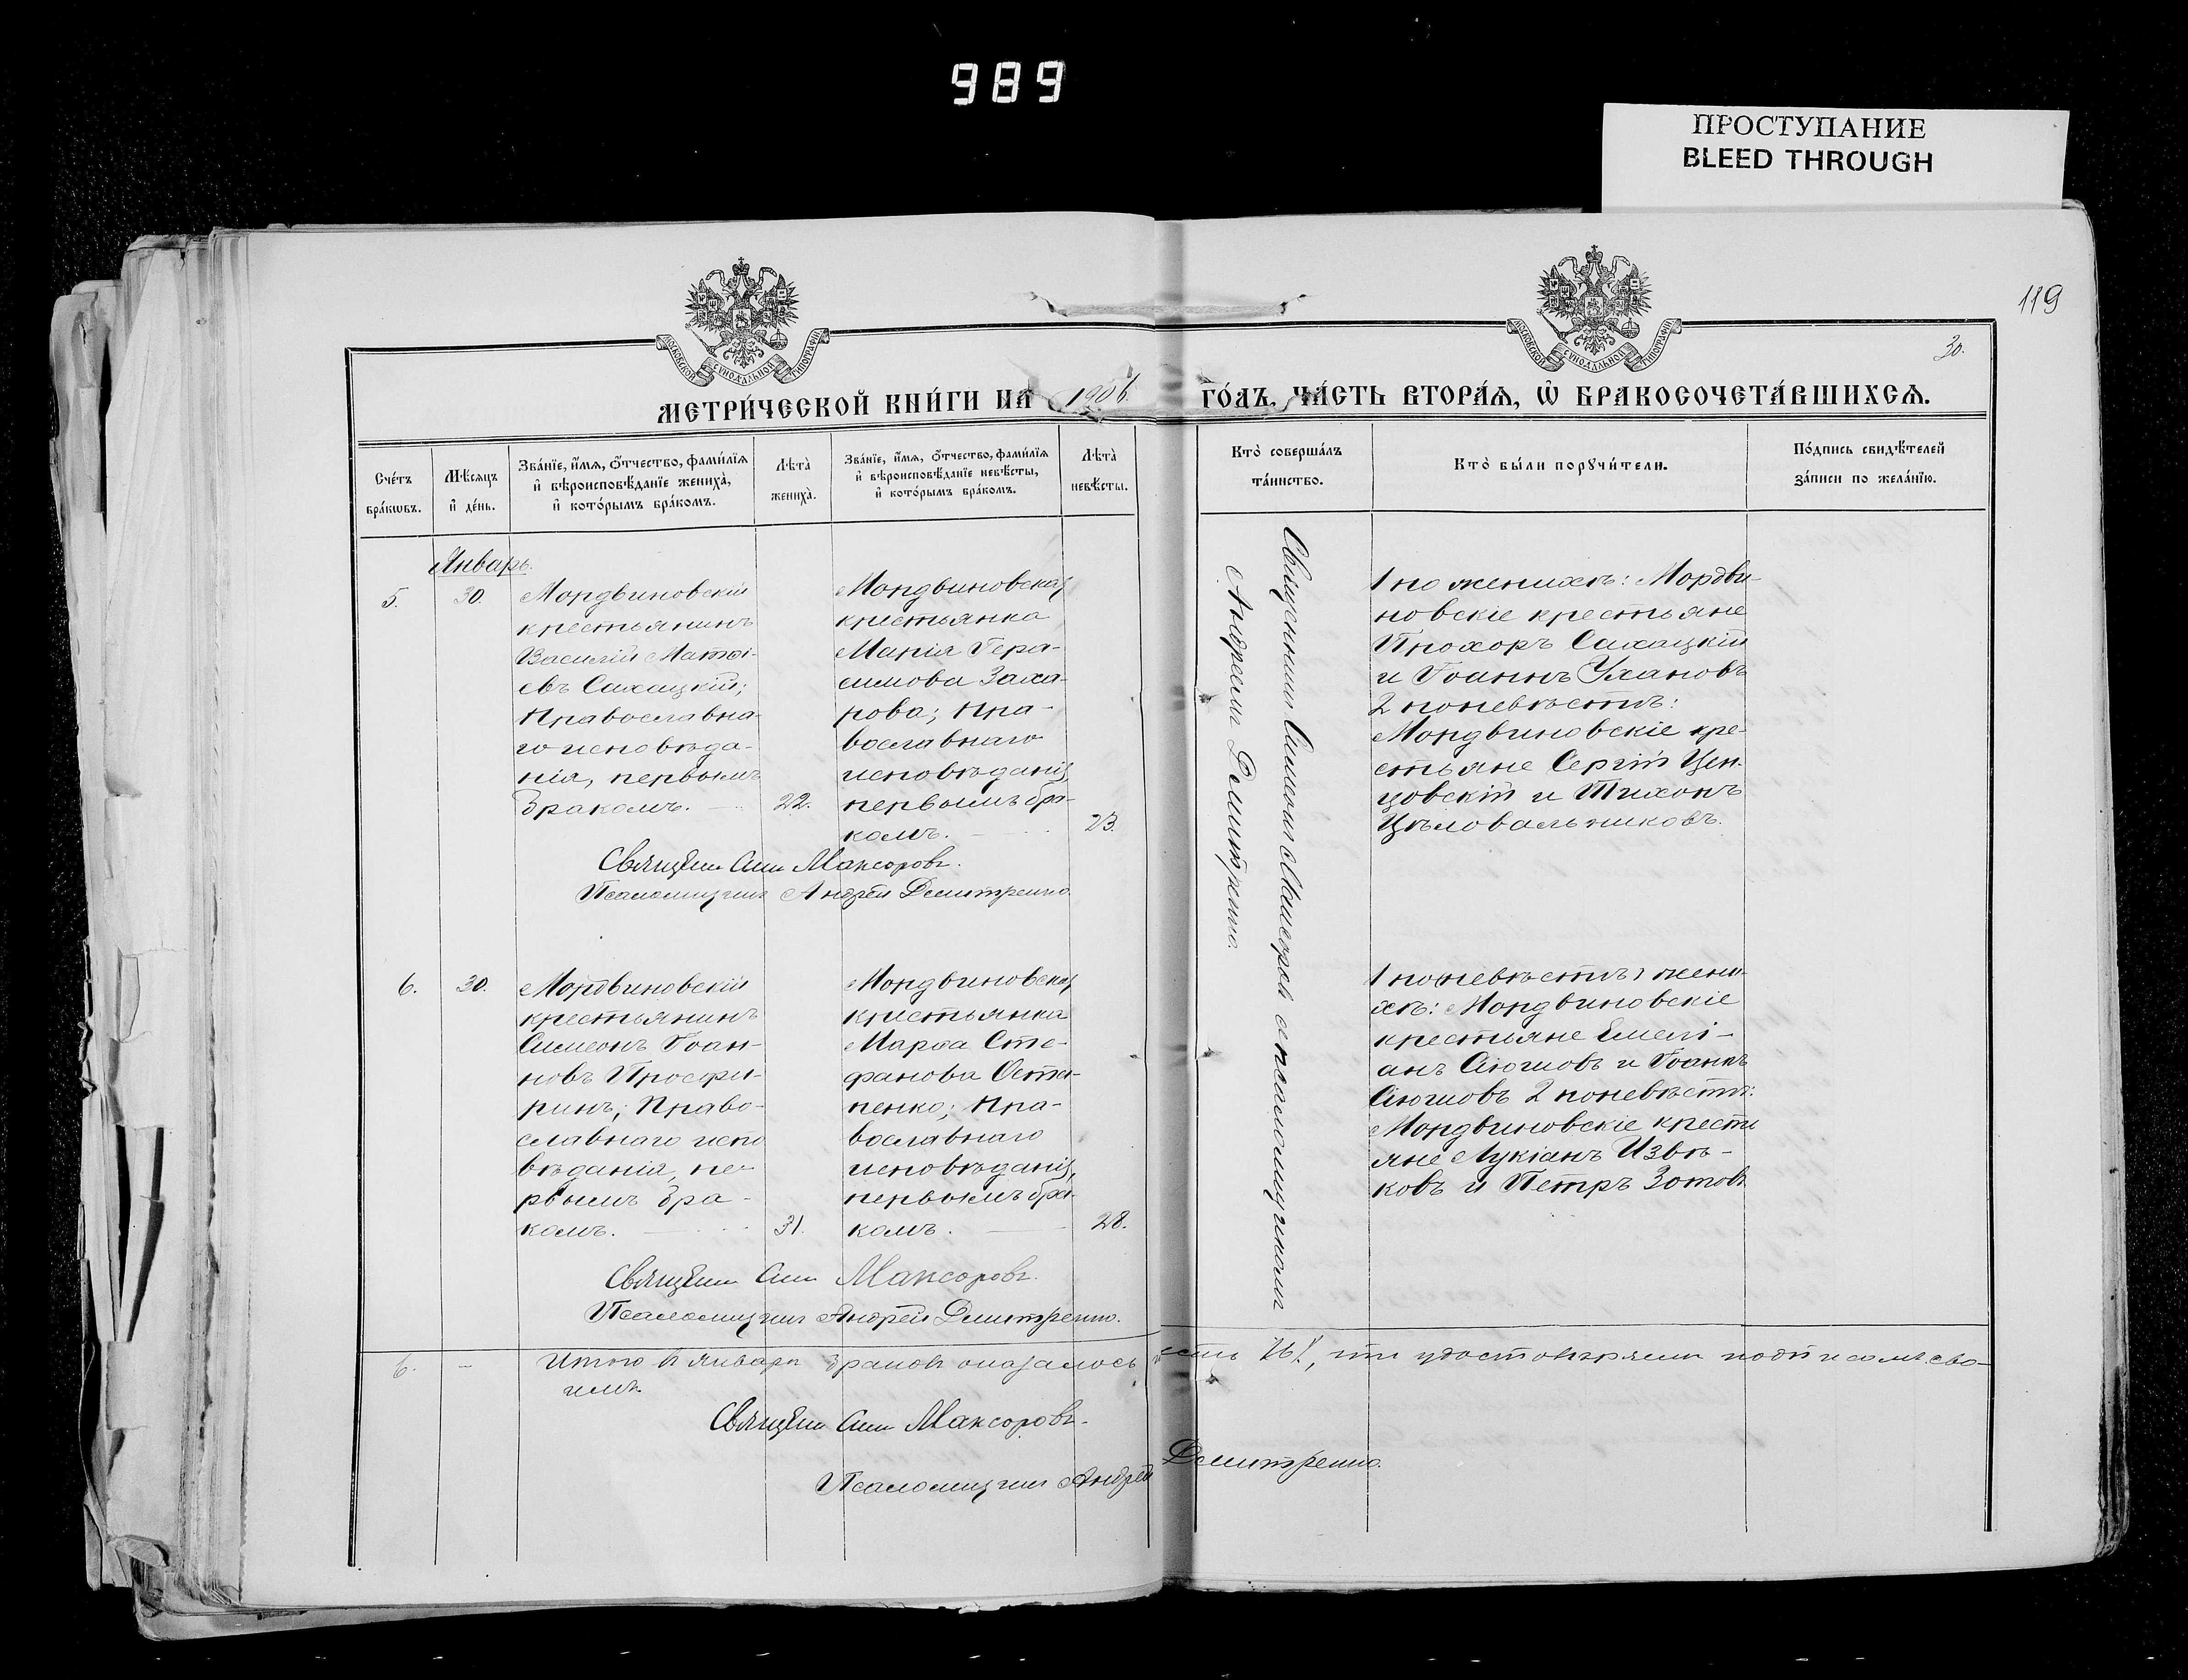 989
ПРОСТУПАНИЕ
BLEED THROUGH
119
30.
МОСКОВСКОЙ СѴНОДАЛЬНОЙ ТИПОГРАФІИ
МОСКОВСКОЙ СѴНОДАЛЬНОЙ ТИПОГРАФІИ
МЕТРИ́ЧЕСКОЙ КНИ́ГИ НА 1906 ГО́ДЪ, ЧА́СТЬ ВТОРА́Ѧ, Ѿ БРАКОСОЧЕТА́ВШИХСѦ.
Сче́тъ
бра́кѡвъ.
Мѣ́сѧцъ
и҆ де́нь.
Зва́нїе, и҆́мѧ, ѻ҆́тчество, фами́лїѧ
и҆ вѣроисповѣ́данїе жениха̀,
и҆ кото́рымъ бра́комъ.
Лѣта̀
жениха̀.
Зва́нїе, и҆́мѧ, ѻ҆́тчество, фами́лїѧ
и҆ вѣроисповѣ́данїе невѣ́сты,
и҆ кото́рымъ бра́комъ.
Лѣта̀
невѣ́сты.
Кто̀ соверша́лъ
та́инство.
Кто̀ бы́ли порꙋчи́тели.
По́дпись свидѣ́телей
за́писи по жела́нїю.
Январь.
5.
30.
Мордвиновскій
крестьянинъ
Василій Матѳі-
евъ Сахацкій;
Православна-
го исповѣда-
нія, первымъ
бракомъ.
22.
Мордвиновская
крестьянка
Марія Гера-
симова Заха-
рова; пра-
вославнаго
исповѣданія,
первымъ бра-
комъ.
23.
Священникъ Симеонъ съ псаломщикомъ
Андреемъ Дмитренко.
1 по женихѣ: Мордви-
новскіе крестьяне
Прохоръ Сахацкій
и Іоаннъ Улановъ
2 по невѣстѣ:
Мордвиновскіе кре-
стьяне Сергій Цен-
цовскій и Тихонъ
Цѣловальниковъ.
Священ Сим Максоровъ.
Псаломщикъ Андрей Дмитренко.
6.
30.
Мордвиновскій
крестьянинъ
Симеонъ Іоан-
новъ Просфи-
ринъ; Право-
славнаго испо
вѣданія, пе-
рвымъ бра-
комъ.
31.
Мордвиновская
крестьянка
Марѳа Сте-
фанова Оста-
пенко; Пра-
вославнаго
исповѣданія,
первымъ бра-
комъ.
28.
1 по жени-
хѣ: Мордвиновскіе
крестьяне Емелі-
анъ и Іоаннъ
2 по невѣстѣ:
Мордвиновскіе крестьяне
яне Лукіанъ Извѣ-
ковъ и Петръ Зотовъ
Священ Сим Максоровъ.
Псаломщикъ Андрей Дмитренко.
6.
Итого въ январѣ браковъ оказалось шесть /6/, что удостовѣряемъ подписомъ сво-
имъ.
Священ Сим Максоровъ.
Псаломщикъ Андрей Дмитренко.